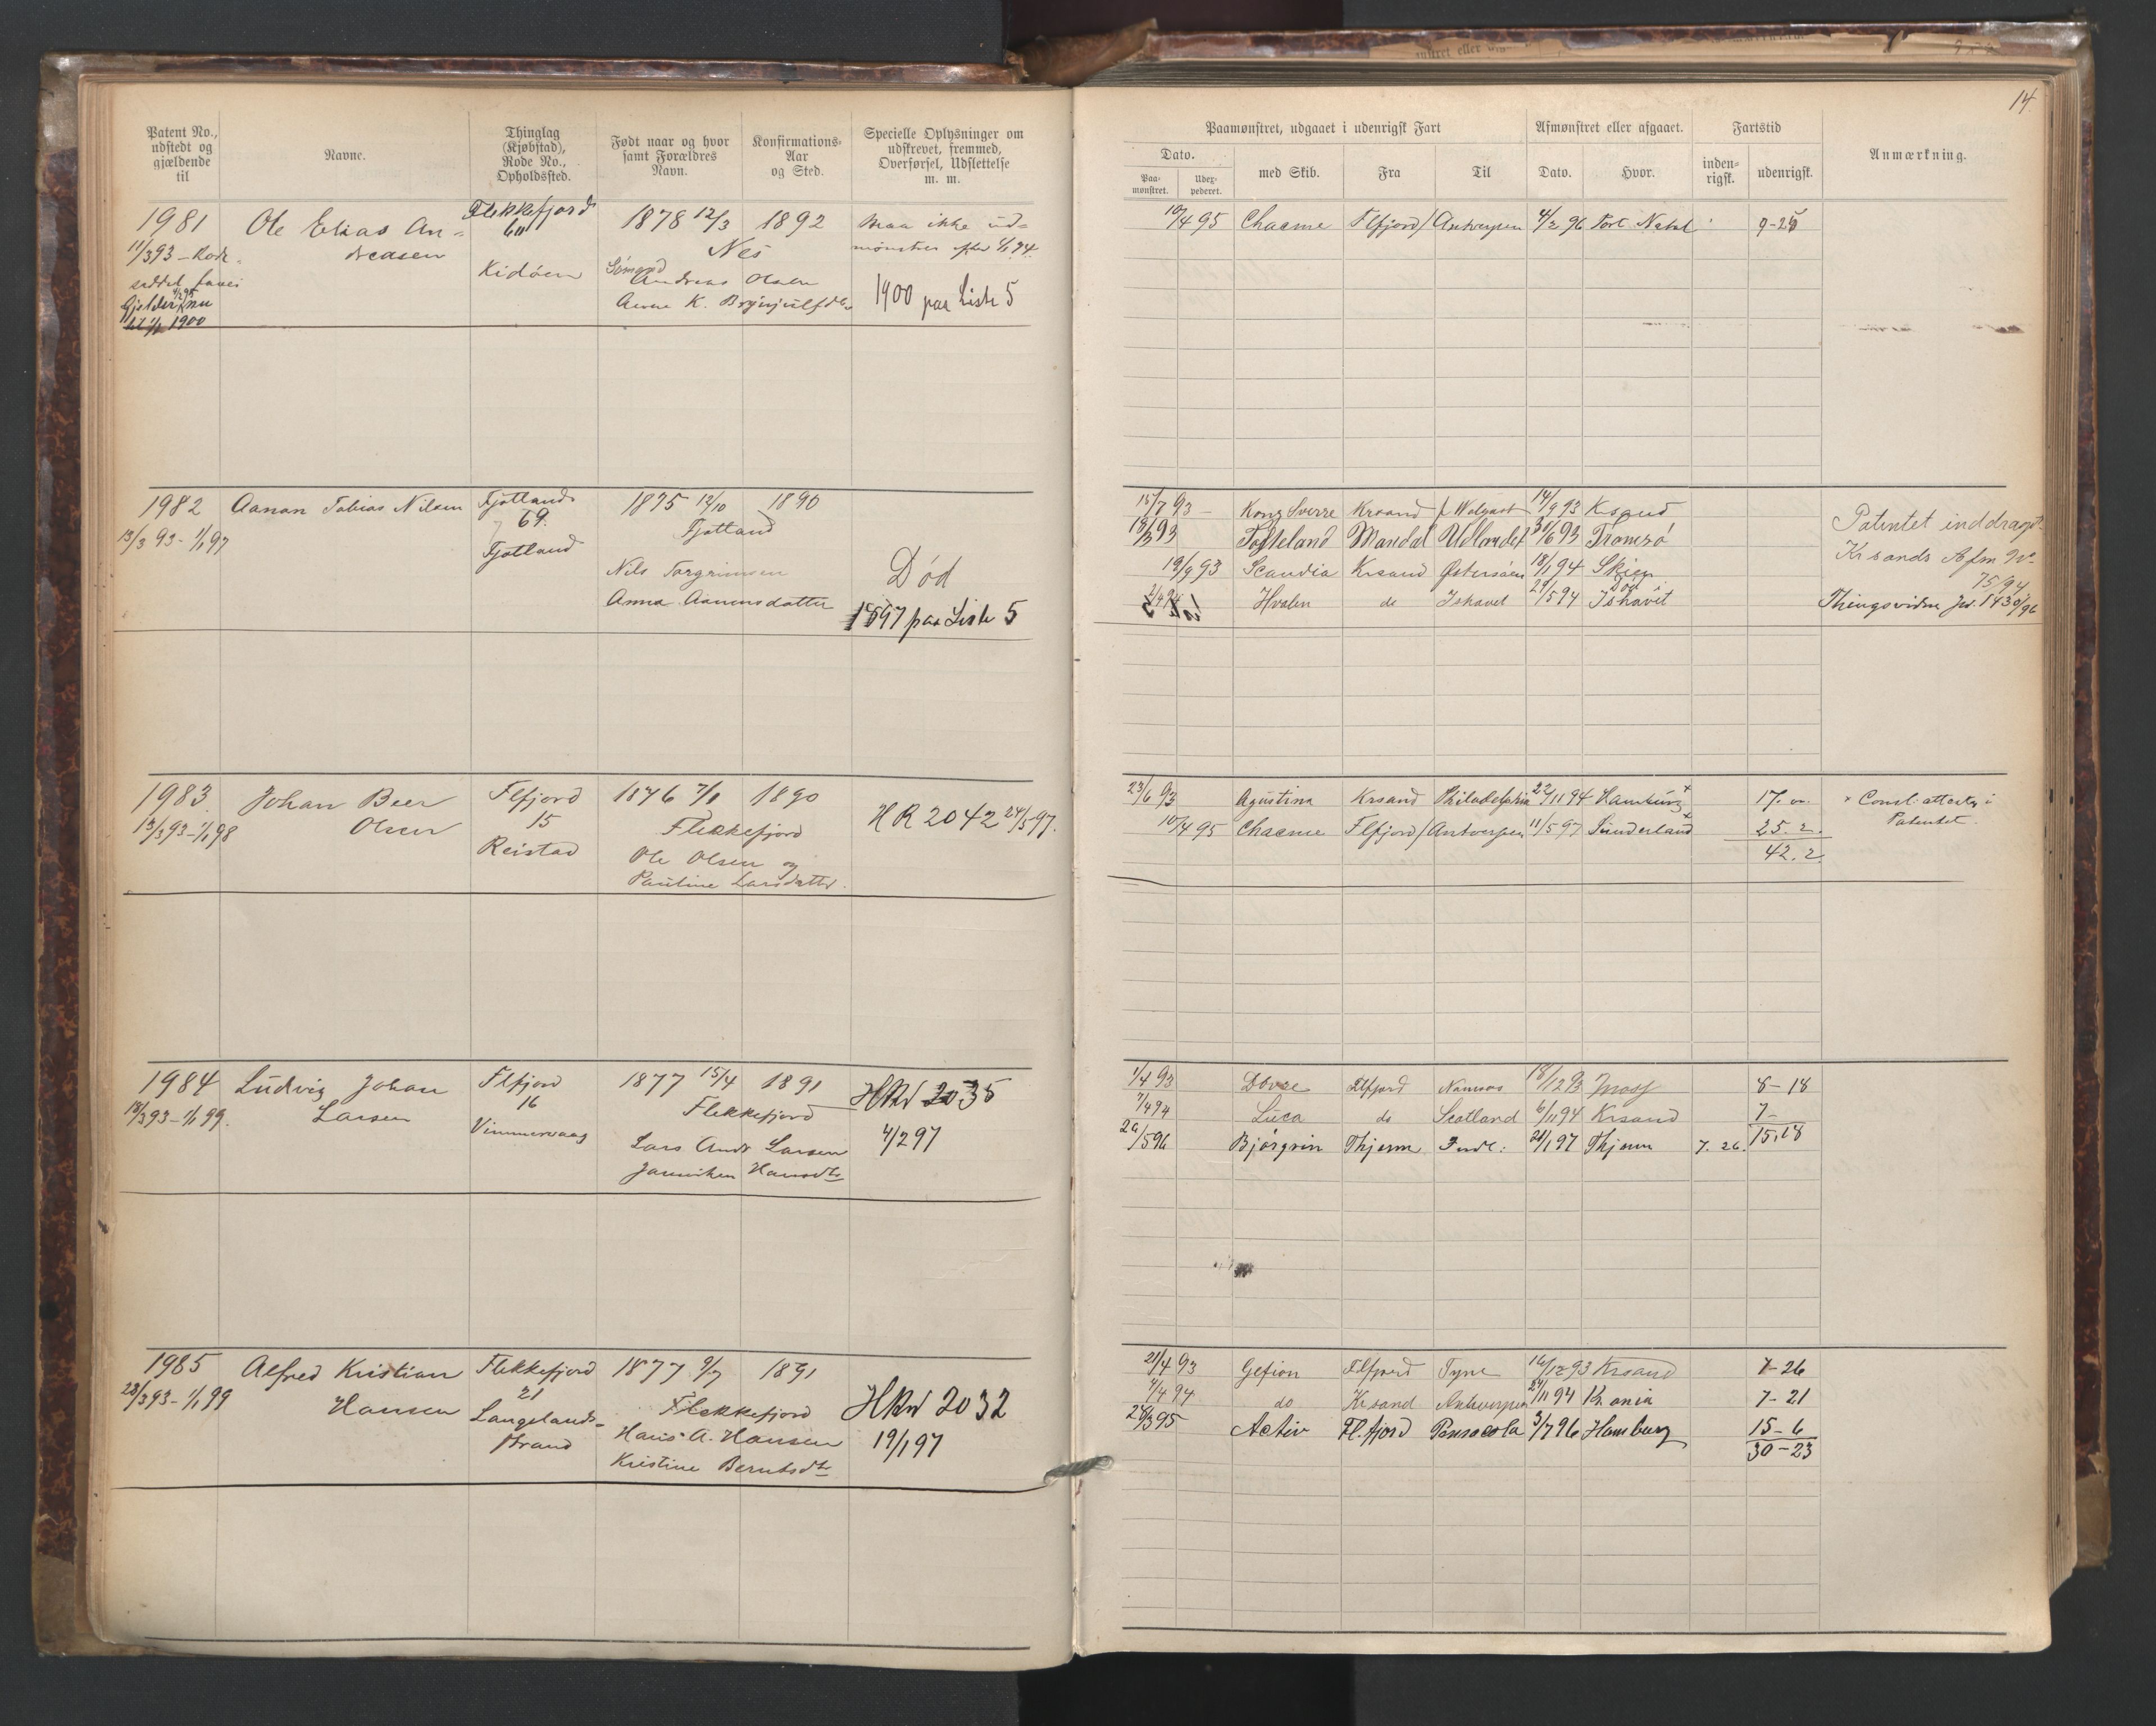 14
Patent No., udstedt og gjældende til
Navne.
Thinglag (Kjøbstad), Rode No., Opholdssted.
Født naar og hvor samt Forældres Navn.
Konfirmations-Aar og Sted.
Specielle Oplysninger om udskrevet, fremmed, Overførsel, Udslettelse m. m.
Paamønstret, udgaaet i udenrigsk Fart
Afmønstret eller afgaaet.
Fartstid
Anmærkning.
Dato.
Paa-mønstret.
Udex-pederet.
med Skib.
Fra
Til
Dato.
Hvor.
inden-rigsk.
udenrigsk.
1981 Ole Elias An- Flekkefjord 1878 12/3 1892 Maa ikke ud-
11/3 93 – Rode- dreasen 60 Nes mønstres efter 1/1 94.
seddel Kidöen Andreas Olsen
Gjelder nu Anne K. Brynjulfsdr 1900 paa Liste 5
til 1/1 1900
10/4 95 Chacme Flfjord Antwerpen 4/2 96 Port Natal 9-25
1982 Aanon Tobias Nilsen Fjotland 1875 12/10 1890
13/3 93 - 1/1 97 69. Fjotland
Fjotland Nils Torgrimsen Død
Anna Aanensdatter 1597 paa Liste 5
15/7 93 – Kong Sverre Krsand Wolgast 14/9 93 Krsand
18/3 93 Tofteland Mandal Udlandet 30/6 93 Tromsø
19/9 93 Scandia Krsand Østersøen 18/1 94 Skien
Hvalen do Ishavet 21/5 94 Død i Ishavet
Patentet inddraget
Krsands Afm No
75/94
Thingsvidne Jno. 1430/96
1983. Johan Beer Flfjord 1876 7/1 1890
13/3 93-1/1 98 Olsen 15 Flekkefjord HR 2042 24/5 97.
Reistad Ole Olsen og
Pauline Larsdatter.
23/6 93 Agustina Krsand Philadelphia 22/11 94 Hamburg + 17. "
10/4 95 Chacme Flfjord Antverpen 11/5 97 Sunderland + 25. 2.
42. 2.
× Consl. attester i
Patentet.
1984 Ludvig Johan Flfjord 1877 15/4 1891 HRN 2035
18/3 93-1/1 99. Larsen 16 Flekkefjord
Vimmervaag Lars Andr Larsen 4/2 97
Janniken Hansdtr
1/4 93 Dovre Flfjord Namsos 18/12 93 Moss 8-18
7/4 94 Luca do Scotland 6/11 94 Krsand 7-
20/5 96 Bjørgvin Thjem Indl: 21/1 97 Thjem 7. 26. 15.18
1985 Alfred Kristian Flekkefjord 1877 9/7 1891
28/3 93-1/1 99 Hansen 21 Flekkefjord HRN 2032
Langelands- Hans A. Hansen 19/1 97
strand Kristine Berntsdtr
21/4 93 Gefion Flfjord Tyne 16/12 93 Krsand 7-26
4/4 94 do Krsand Antwerpen 24/11 94 Kr.ania 7-21
28/3 95 Activ Fl.fjord Pensacola 3/7 96 Hamburg 15-6
30-23